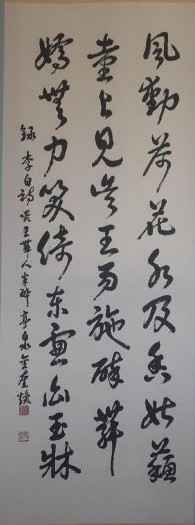 風動荷花水殿香姑蘇
臺上見吳王西施醉舞
嬌無力笑倚東窗白玉牀
錄李白詩吳王美人半醉 亭泉